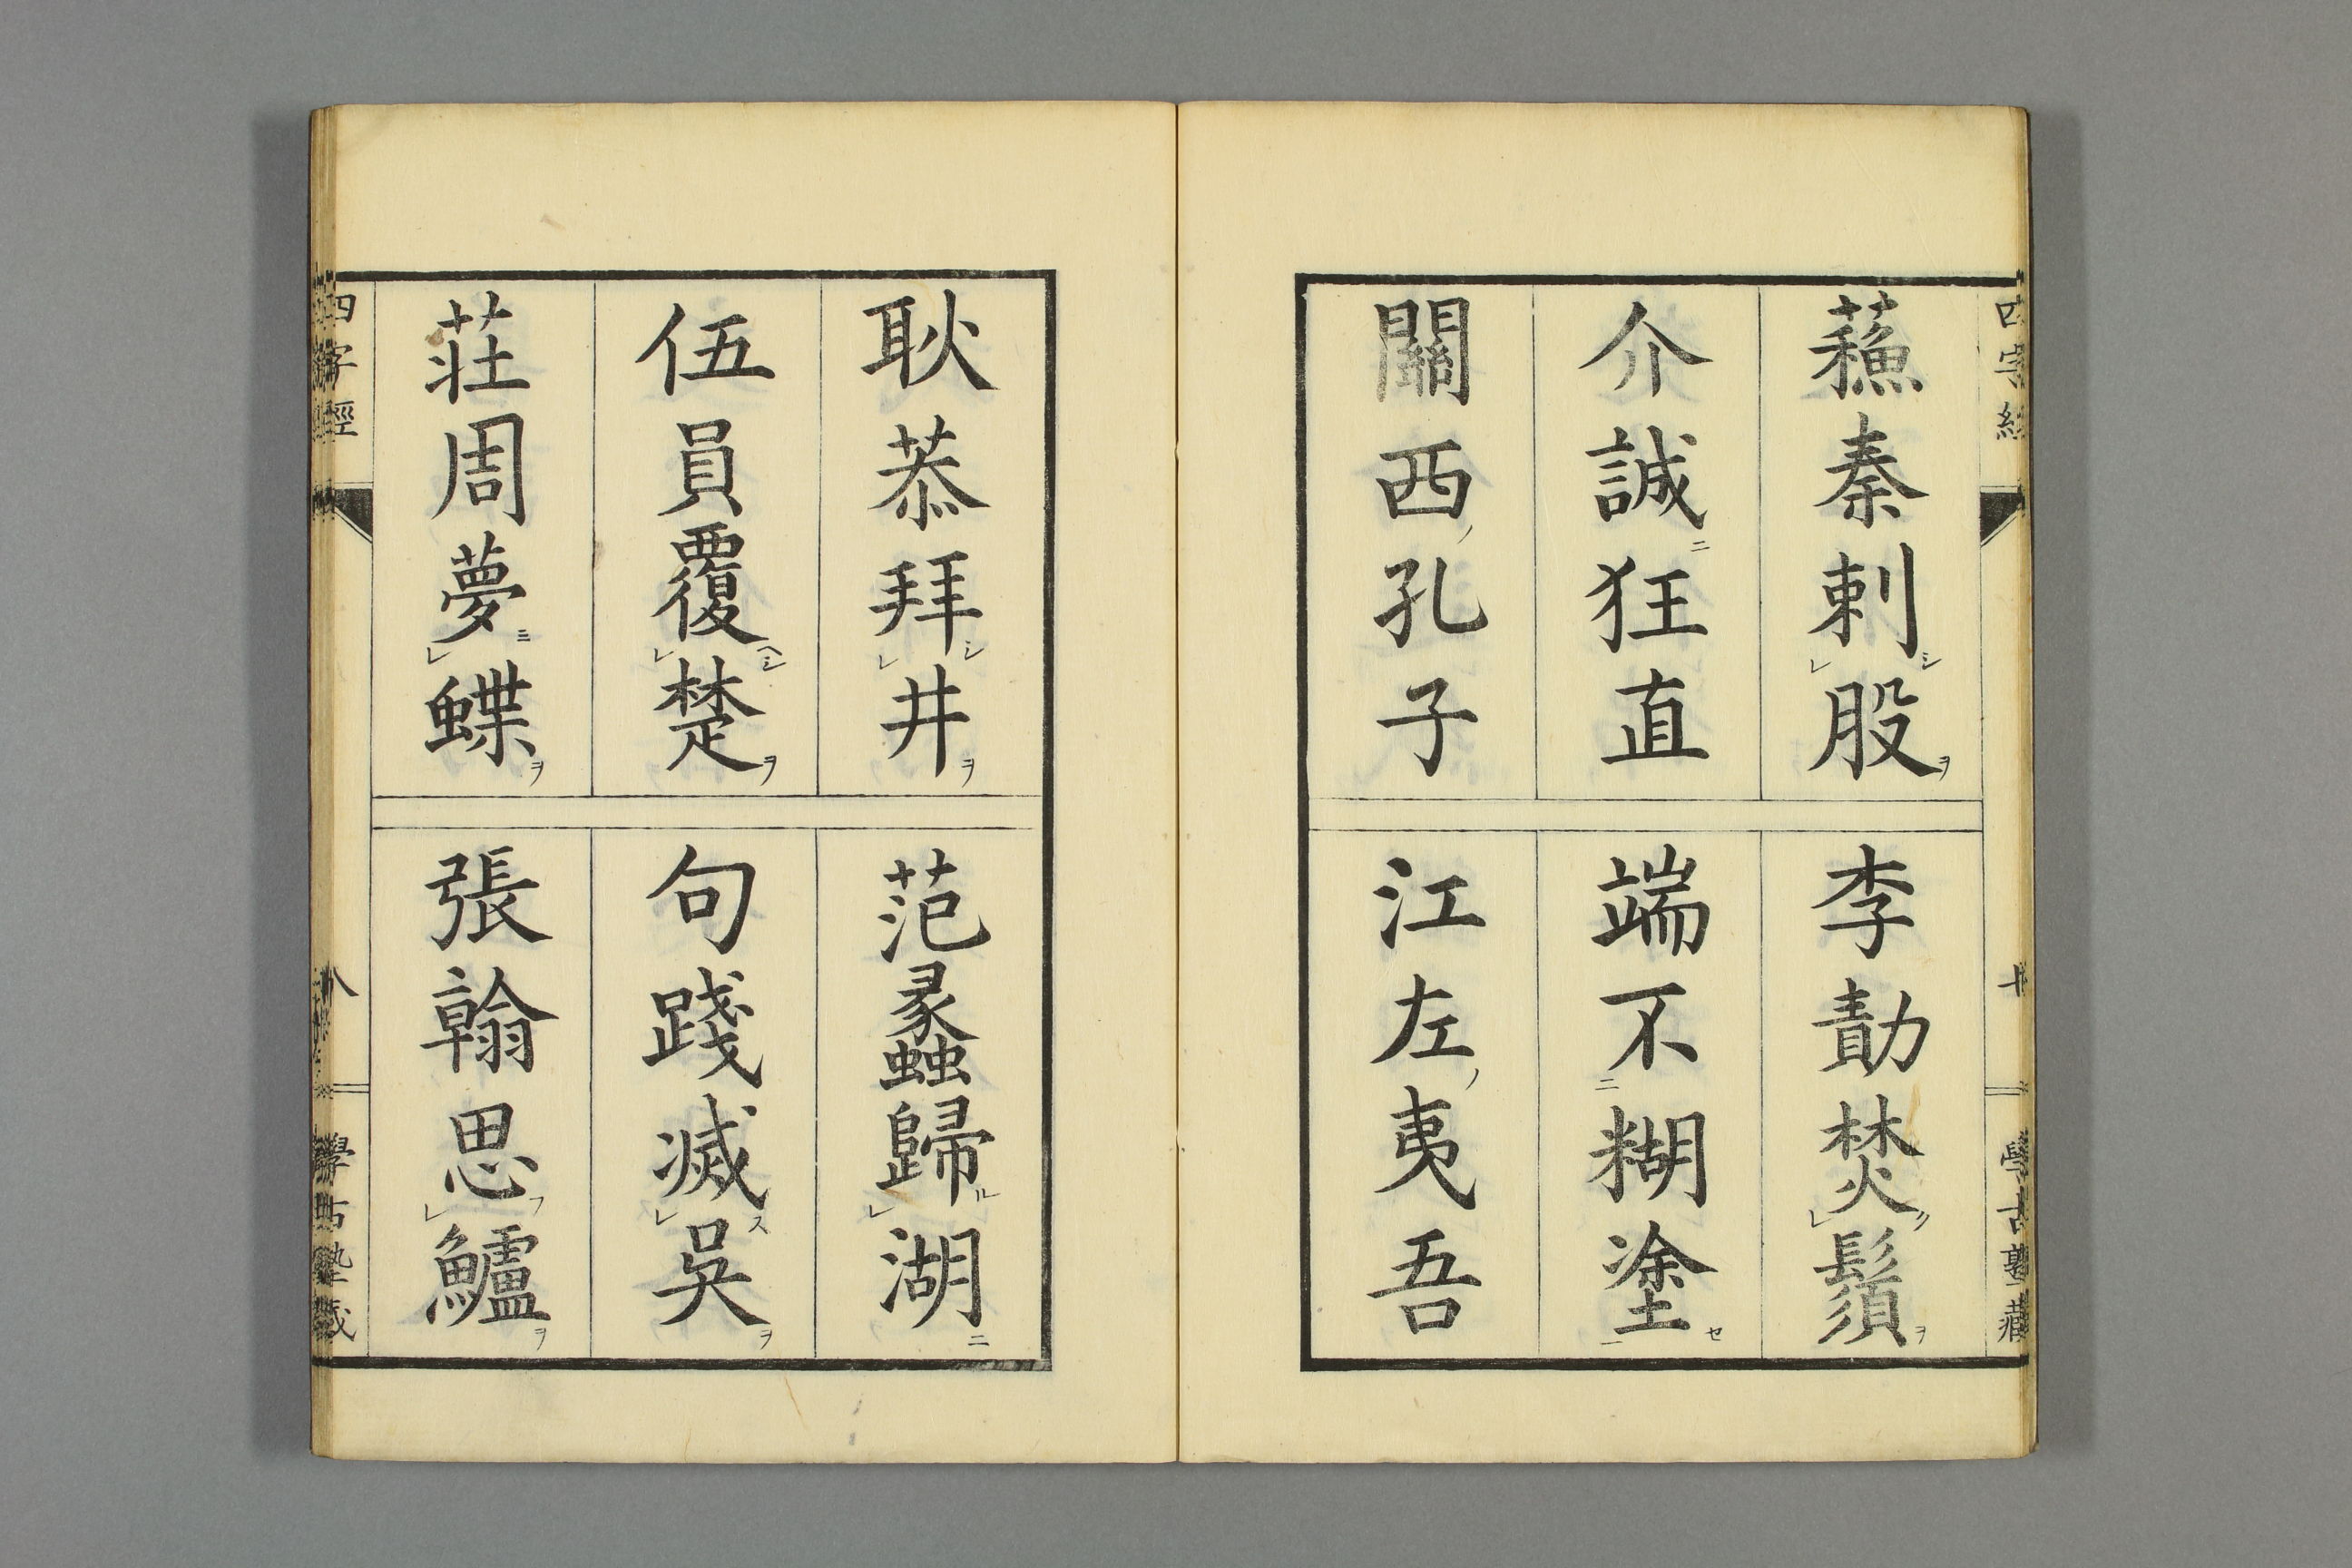 蘓秦刺シレ股ヲ
李勣焚ツレ鬚ヲ
介誠ニ狂直
端不二糊塗セ一
關西ノ孔子
江左ノ夷吾
耿恭拜シレ井ヲ
范蠡歸ルレ湖ニ
伍員覆ヘシレ楚ヲ
句踐滅スレ吳ヲ
莊周夢ミレ蝶ヲ
張翰思フレ鱸ヲ
四字經
八
學古塾藏